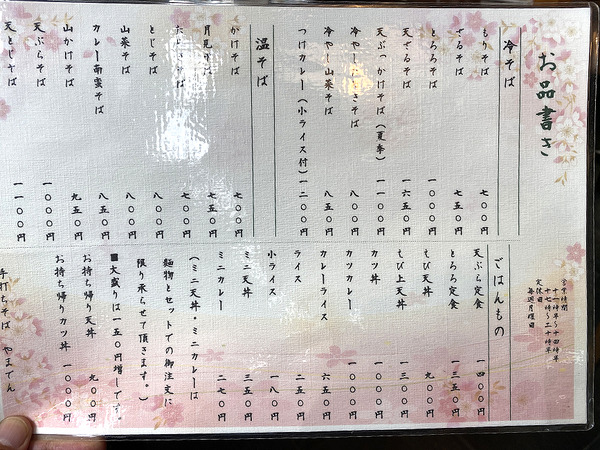 お品書き
冷そば
もりそば 七〇〇円
ざるそば 七五〇円
とろろそば 一〇〇〇円
天ざるそば 一六五〇円
天ぶっかけそば(夏季) 一一〇〇円
冷やし そば 八〇〇円
冷やし山菜そば 八五〇円
つけカレー(小ライス付)一二〇〇円
温そば
かけそば 七〇〇円
月見そば 七五〇円
そば 七〇〇円
とじそば 八〇〇円
山菜そば 八〇〇円
カレー南蛮そば 八五〇円
山かけそば 九五〇円
天ぷらそば 一〇〇〇円
天とじそば 一一〇〇円
営業時間
十一時半〜十四時半
十七時〜二十時半
定休日
毎週月曜日
ごはんもの
天ぷら定食 一四〇〇円
とろろ定食 一三五〇円
えび天丼 九〇〇円
えび上天丼 一三〇〇円
カツ丼 一〇〇〇円
カツカレー 一〇〇〇円
カレーライス 六五〇円
ライス 二五〇円
小ライス 一八〇円
ミニ天丼 三五〇円
ミニカレー 二七〇円
(ミニ天丼・ミニカレーは
麺物とセットでの御注文に
限り承らせて頂きます。)
■大盛りは一五〇円増しです。
お持ち帰り天丼 九〇〇円
お持ち帰りカツ丼 一〇〇〇円
手打ちそば やまてん